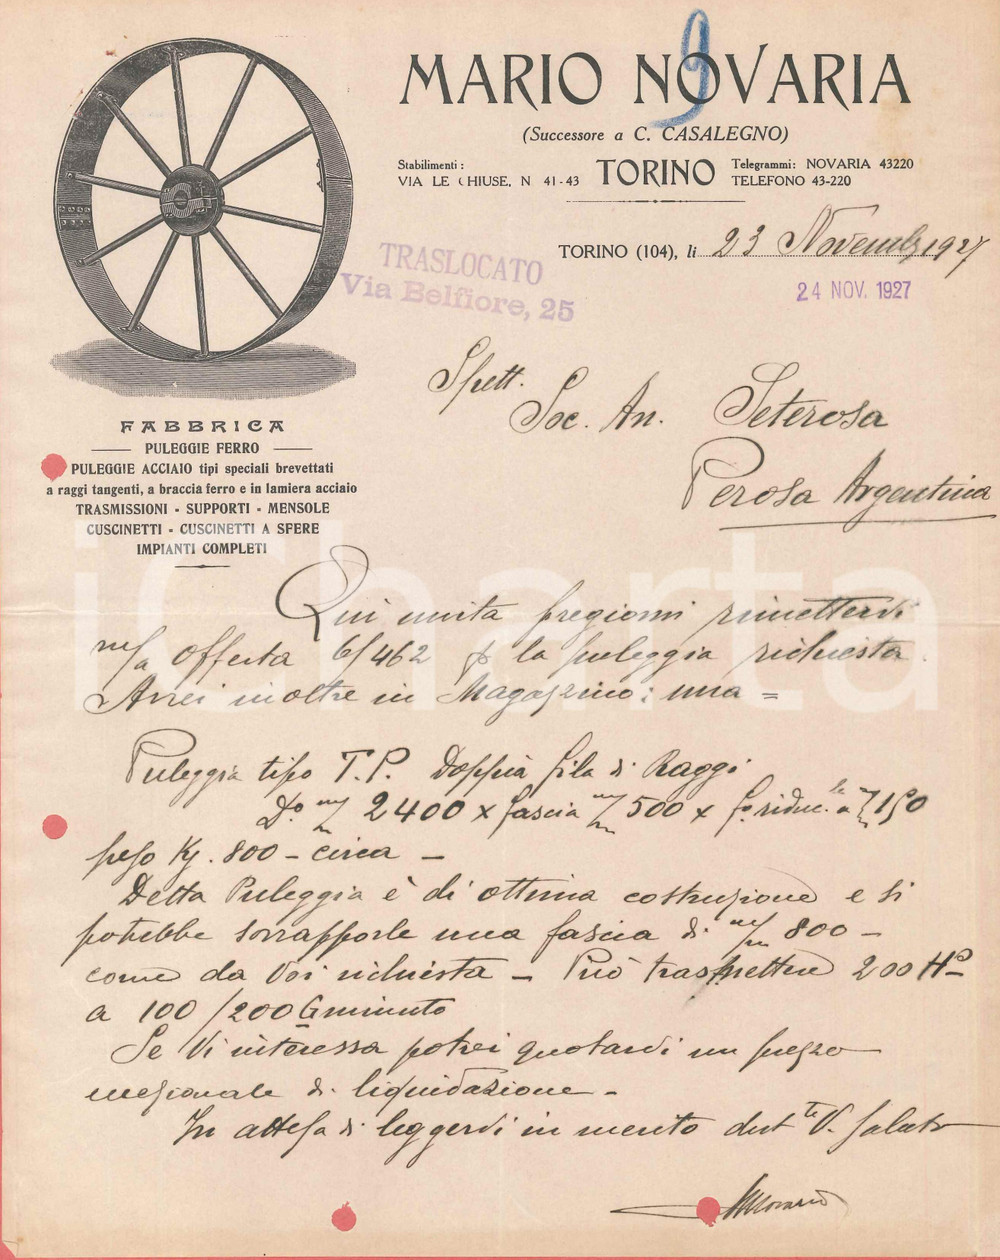 9
MARIO NOVARIA
(Successore a C. CASALEGNO)
Stabilimenti :
VIA LE CHIUSE, N 41-43
TORINO
Telegrammi: NOVARIA 43220
TELEFONO 43-220
TORINO (104), li 23 Novembre 1927
24 NOV. 1927
TRASLOCATO
Via Belfiore, 25
Spett.
Soc. An. Seterosa
Perosa Argentina
FABBRICA
PULEGGIE FERRO
PULEGGIE ACCIAIO tipi speciali brevettati
a raggi tangenti, a braccia ferro e in lamiera acciaio
TRASMISSIONI - SUPPORTI - MENSOLE
CUSCINETTI - CUSCINETTI A SFERE
IMPIANTI COMPLETI
Qui unita pregiomi rimettervi
m/a offerta 6/462 p la puleggia richiesta.
Avrei inoltre in Magazzino: una =
Puleggia tipo T.P. Doppia fila di Raggi
Do. m/m 2400 x fascia m/m 500 x fo. riduc.le a m/m 150
peso Kg. 800 - circa -
Detta Puleggia è di ottima costruzione e si
potrebbe sovrapporle una fascia di m/m 800 -
come da Voi richiesta - Può trasmettere 200 HP
a 100/200 G minuto
Se Vi interessa potrei quotarvi un prezzo
eccezionale di liquidazione -
In attesa di leggervi in merito dist.te V. saluto
MNovaria
iCharta